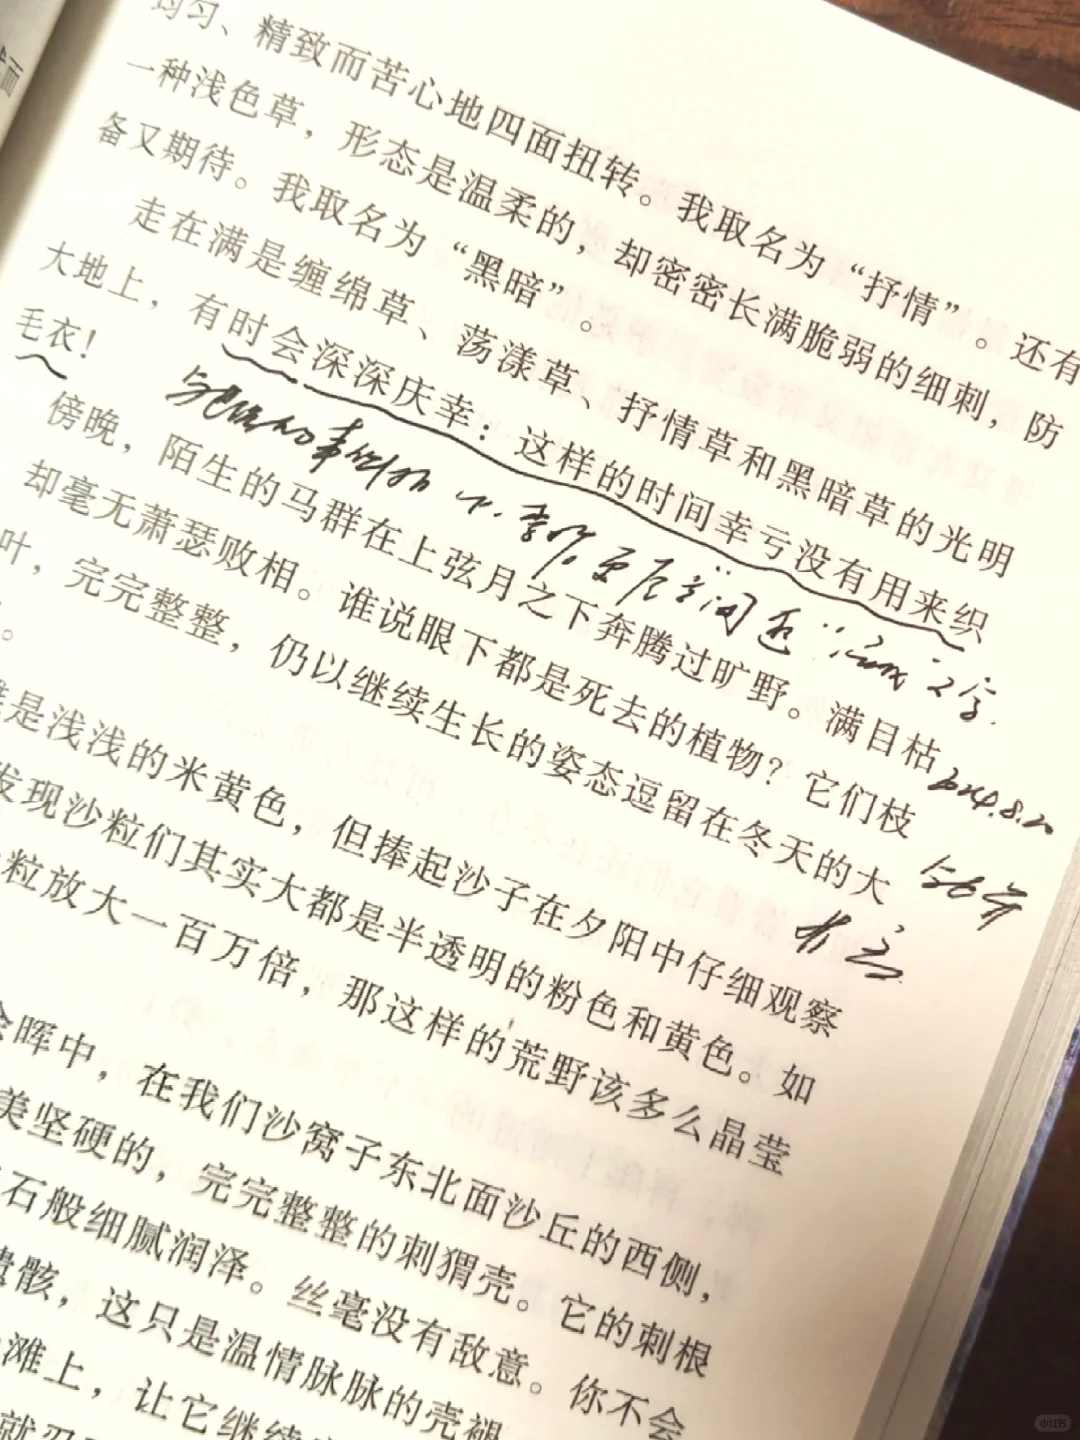 均匀、精致而苦心地四面扭转。我取名为“抒情”。还有
一种浅色草，形态是温柔的，却密密长满脆弱的细刺，防
备又期待。我取名为“黑暗”。
走在满是缠绵草、荡漾草、抒情草和黑暗草的光明
大地上，有时会深深庆幸：这样的时间幸亏没有用来织
毛衣！
傍晚，陌生的马群在上弦月之下奔腾过旷野。满目枯
却毫无萧瑟败相。谁说眼下都是死去的植物？它们枝
叶，完完整整，仍以继续生长的姿态逗留在冬天的大
2024.8.20
。
是浅浅的米黄色，但捧起沙子在夕阳中仔细观察
发现沙粒们其实大都是半透明的粉色和黄色。如
粒放大一百万倍，那这样的荒野该多么晶莹
晖中，在我们沙窝子东北面沙丘的西侧，
美坚硬的，完完整整的刺猬壳。它的刺根
石般细腻润泽。丝毫没有敌意。你不会
遗骸，这只是温情脉脉的壳褪
滩上，让它继续